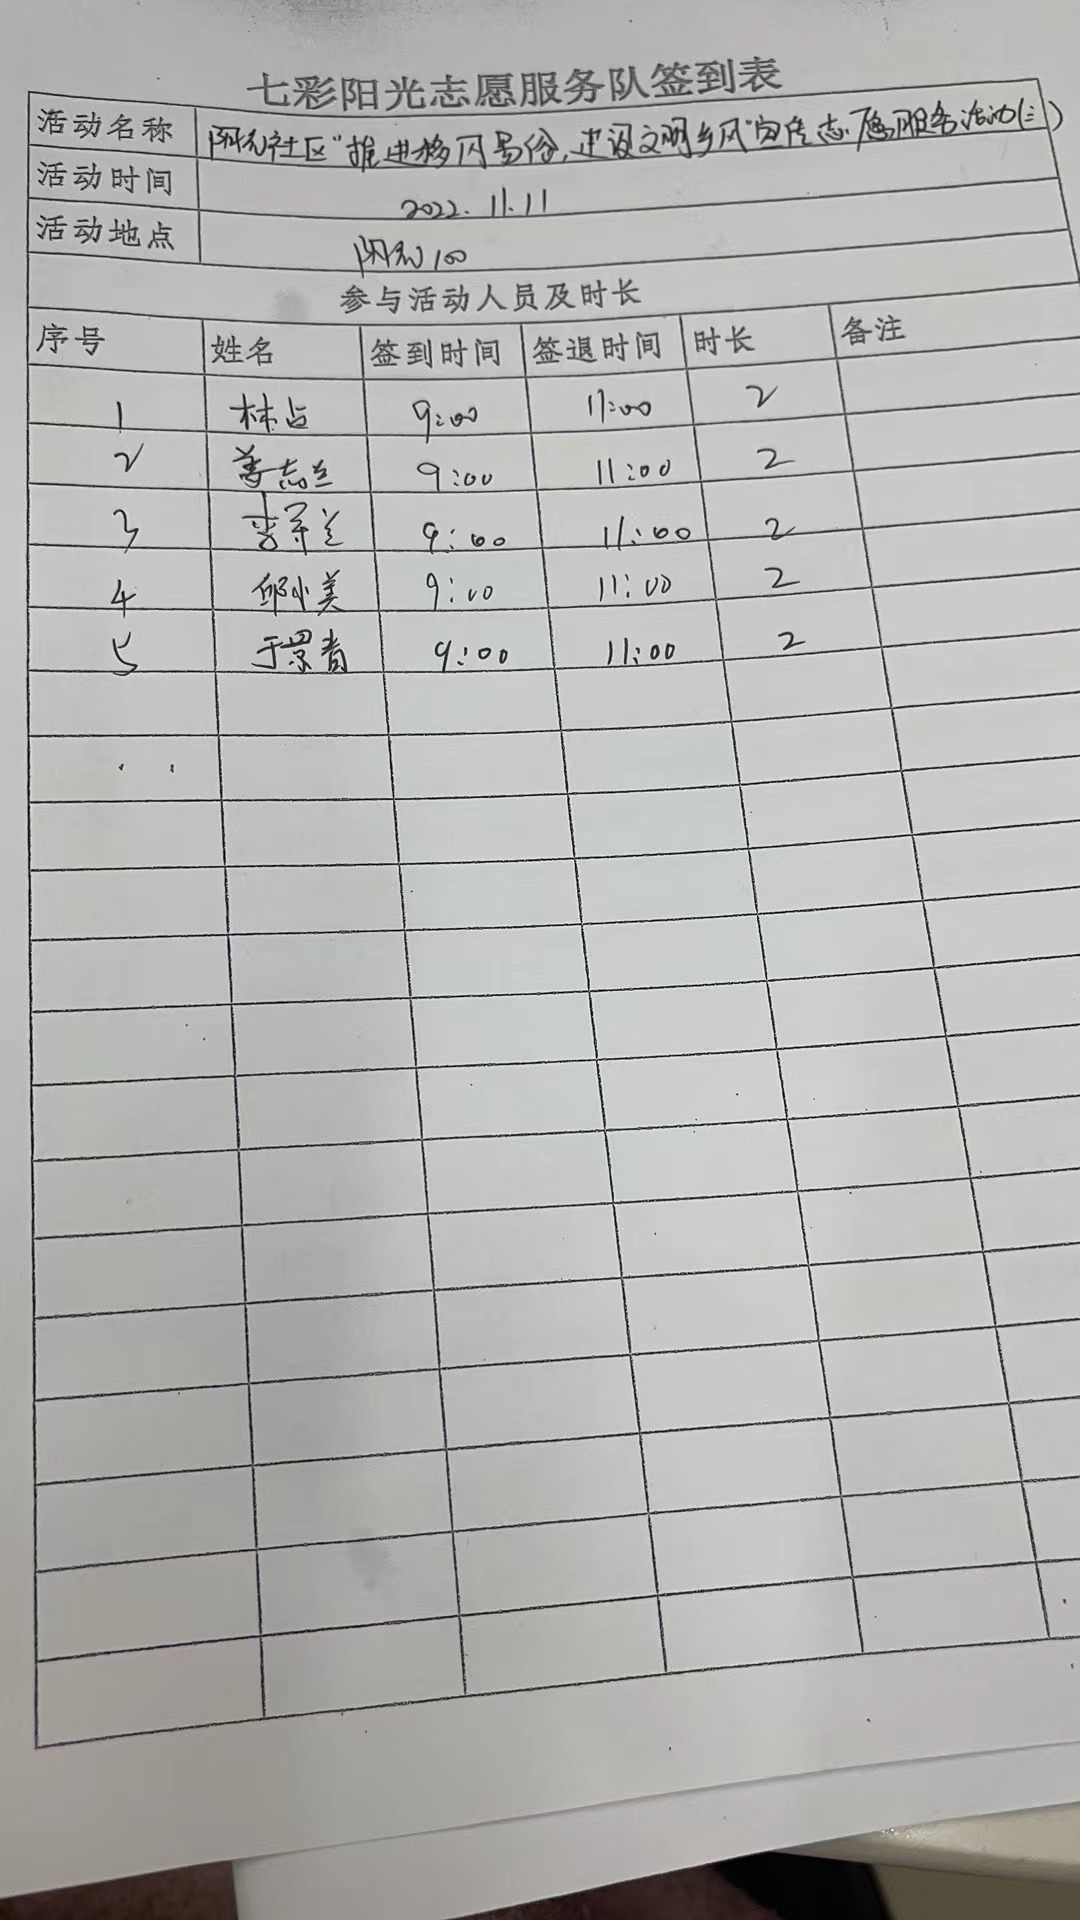 七彩阳光志愿服务队签到表
活动名称 阳光社区"推进移风易俗,建设文明乡风"宣传志愿服务活动(三)
活动时间 2022.11.11
活动地点 阳光100
参与活动人员及时长
序号 姓名 签到时间 签退时间 时长 备注
1 林占 9:00 11:00 2
2 姜志兰 9:00 11:00 2
3 李 兰 9:00 11:00 2
4 邱小美 9:00 11:00 2
5 于景青 9:00 11:00 2